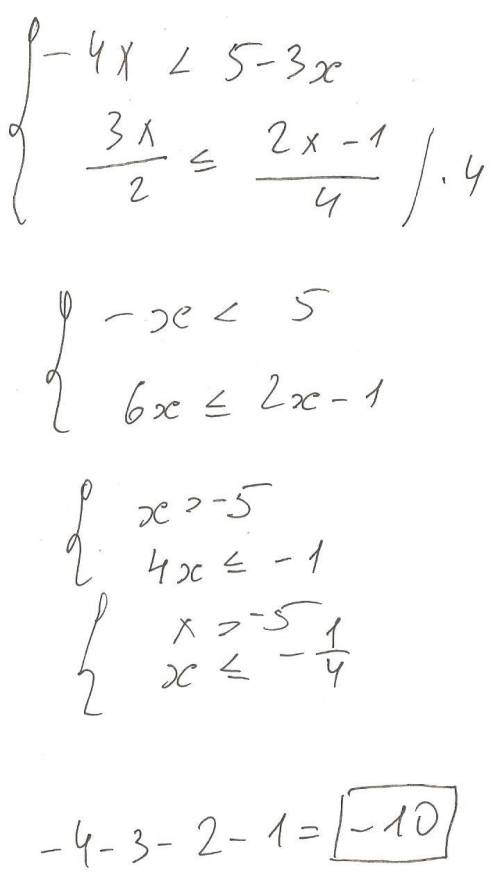 -4x < 5-3x
3x/2 ≤ (2x-1)/4 /·4
-x < 5
6x ≤ 2x-1
x > -5
4x ≤ -1
x > -5
x ≤ -1/4
-4-3-2-1 = -10